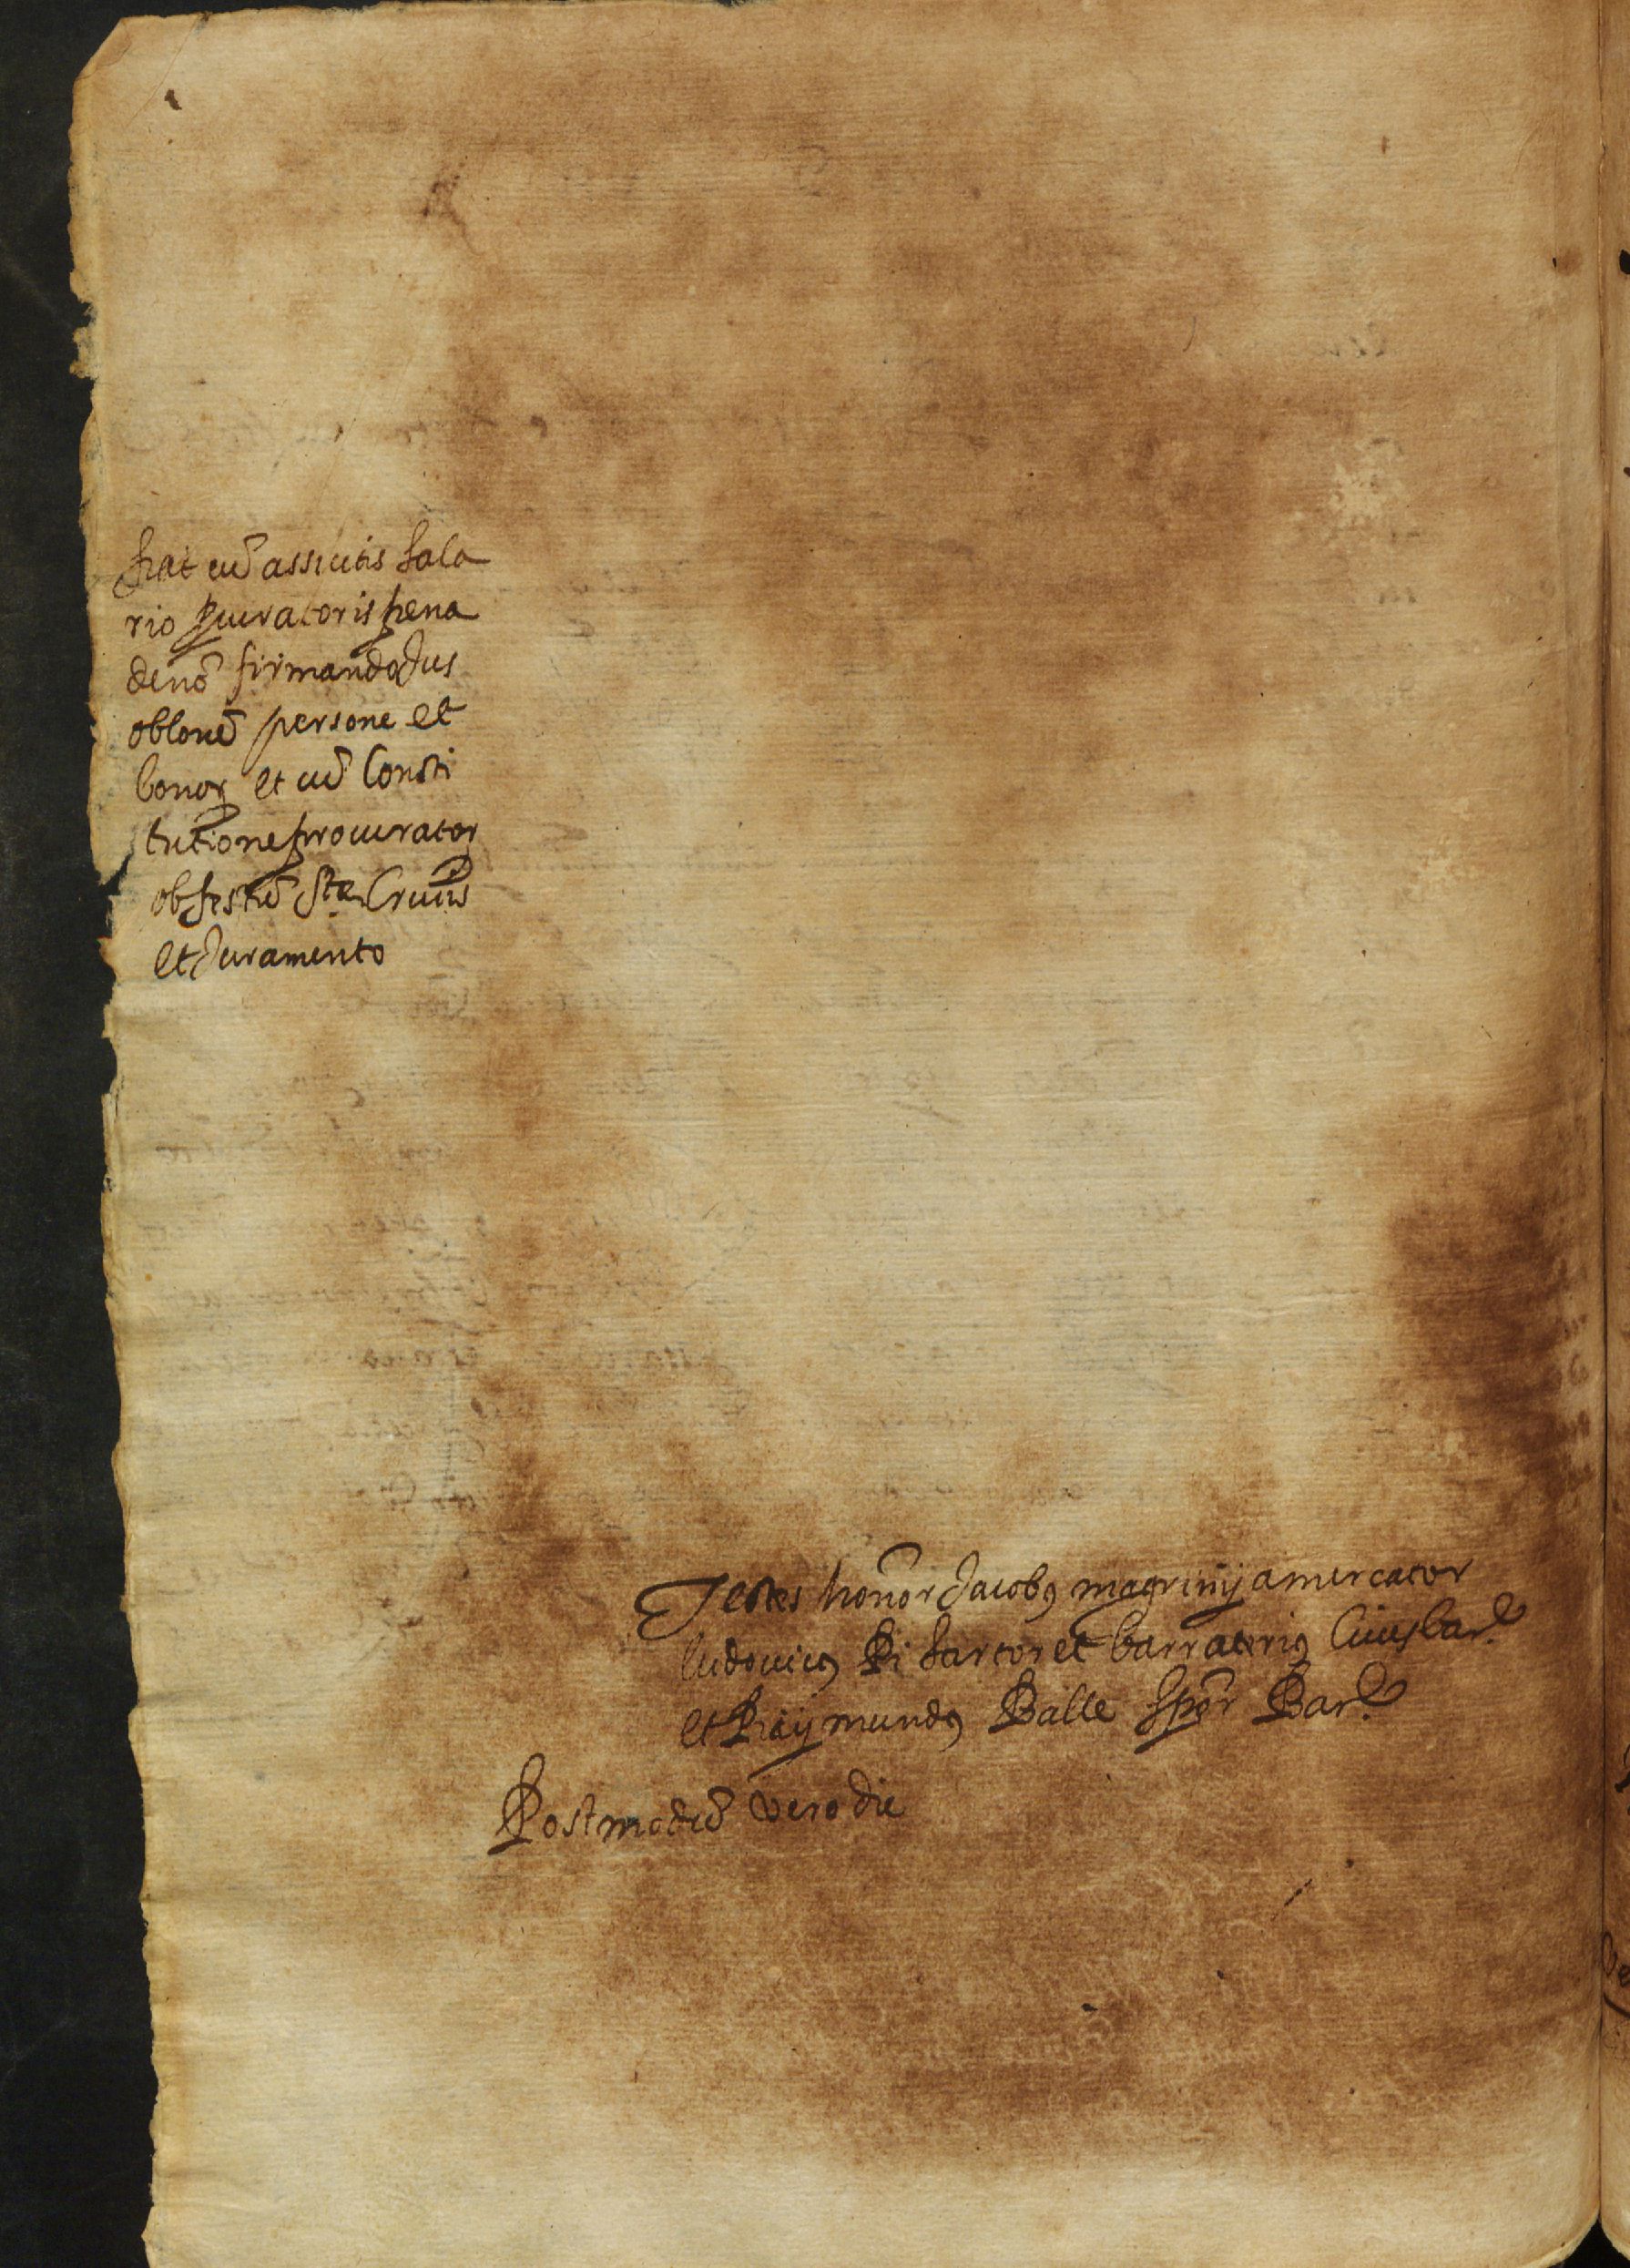 fiat cū assiutis sala
rio ꝓcuratoris pena
denō firmando Jus
oblonē persone et
bonoꝝ et cū Consti
tutione procuratoꝝ
ob festū Ste Crucis
et Juramento
Testes honor Jacobꝰ magrinya mercator
ludouicꝰ Pi sartor et barrateriꝰ Ciues Bar.
et Raymundꝰ Balle scptor Bar.
Postmodū vero die